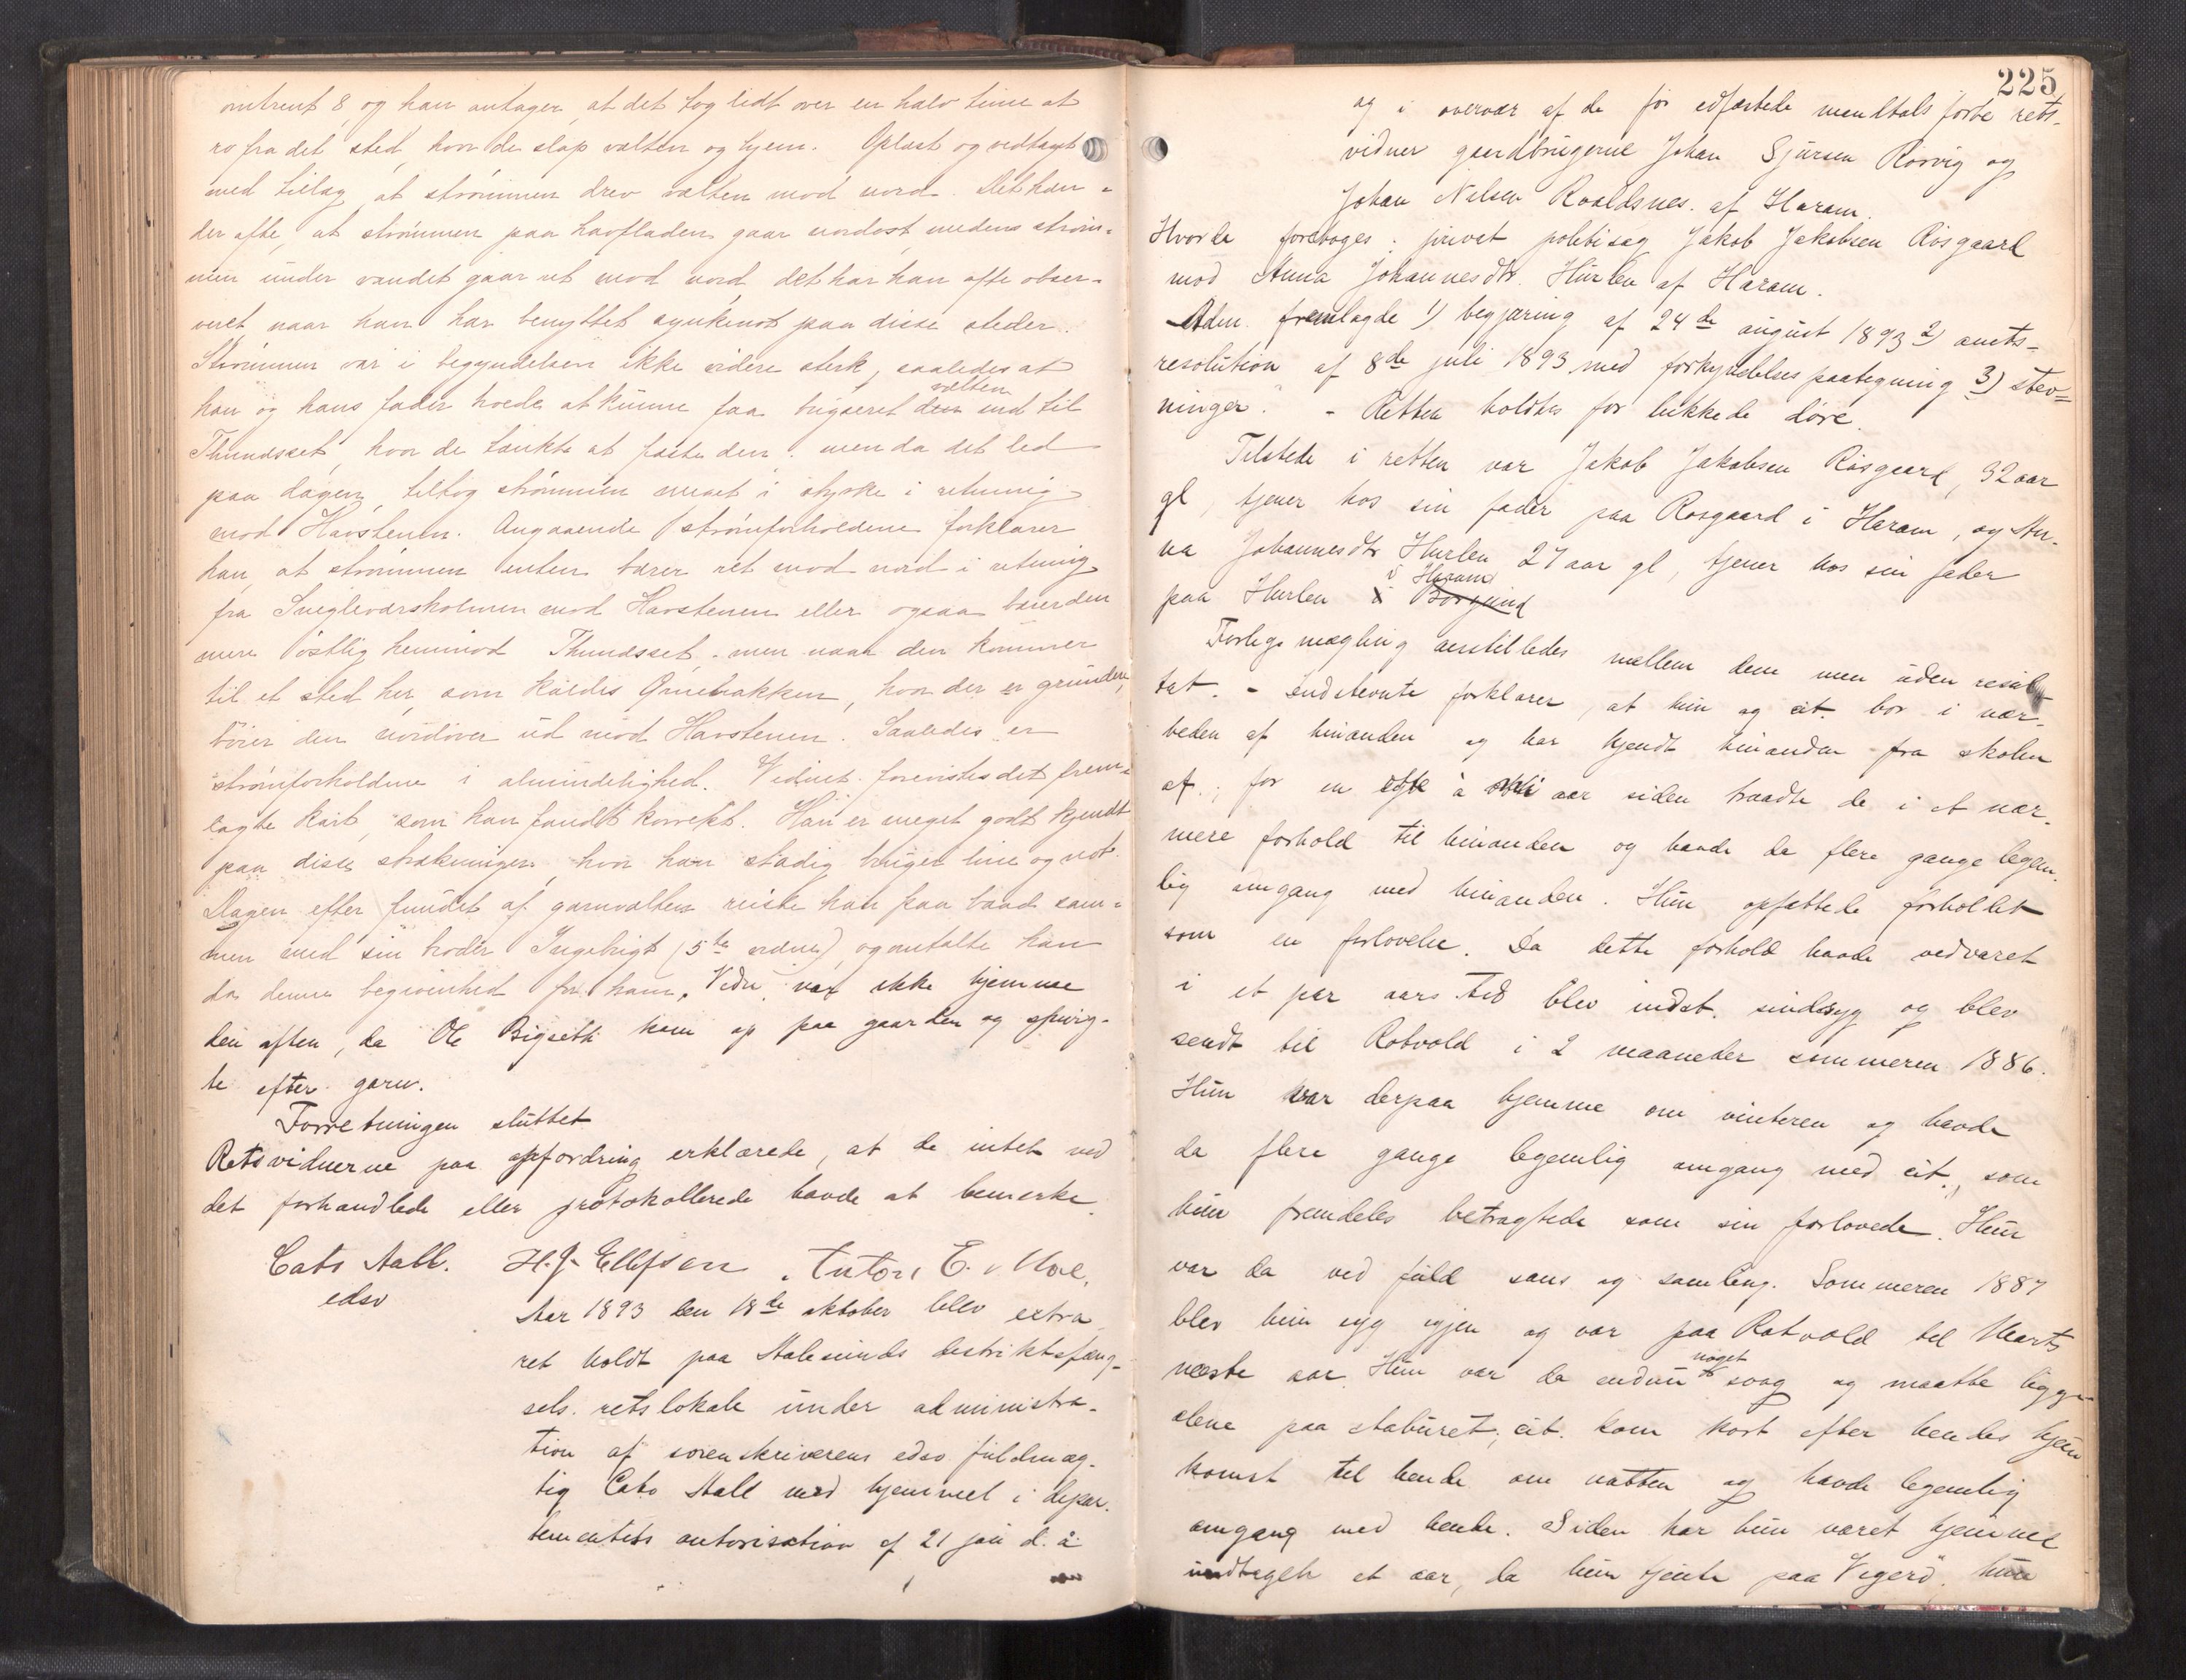 omtrent 8 og han antager, at det tog lidt over en halv time at
ro fra det sted, hvor de slap vælten og hjem. Oplæst og vedtaget
med tillæg, at strømmen drev vælten mod nord. Det hæn-
der ofte, at strømmen paa havfladen gaar nordost, medens strøm-
men under vandet gaar ret mod nord, det har han ofte obser-
veret, naar han har benyttet synkenot paa disse steder.
Strømmen var i begyndelsen ikke videre sterk, saaledes at
han og hans fader troede at kunne faa bugseret vælten ind til
Thunæsset, hvor de tænkte at fæste den; men da det led
paa dagen, tiltog strømmen meget i styrke i retning
mod Havstenen. Angaaende strømforholdene forklarer
han, at strømmen enten bærer ret mod nord i retning
fra Snegleværsholmen mod Havstenen eller ogsaa bærer den
mere østlig henimod Thunæsset, men naar den kommer
til et sted her, som kaldes Ørnebakken, hvor der er grundere,
bøier den nordover ud mod Havstenen. Saaledes er
strømforholdene i almindelighed. Vidnet forevistes det frem-
lagte kart, som han fandt korrekt. Han er meget godt kjendt
paa disse strækninger, hvor han stadig bruger line og not.
Dagen efter fundet af garnvælten reiste han paa baad sam-
men med sin broder Ingebrigt (5te vidne), og omtalte han
da denne begivenhed for ham. Vidn. var ikke hjemme
den aften, da Ole Bigseth kom op paa gaarden og spurg-
te efter garn.
Forretningen sluttet
Retsvidnerne paa opfordring erklærede, at de intet ved
det forhandlede eller protokollerede havde at bemærke.
Cato Aall. H. J. Ellefsen Anton E. Moe.
edsv
Aar 1893 den 18de oktober blev extra
ret holdt paa Aalesunds distriktsfæng-
sels retslokale under administra-
tion af sorenskriverens edsv. fuldmæg-
tig Cato Aall med hjemmel i depar-
tementets autorisation af 21 jan d. å
225
og i overvær af de før edfæstede mandtalsførte rets-
vidner gaardbrugerne Johan Sjursen Rørvig og
Johan Nilsen Roaldsnes af Haram.
Hvorda foretoges: privat politisag Jakob Jakobsen Røsgaard
mod Anna Johannesdtr. Hurlen af Haram.
Adm. fremlagde 1) begjæring af 24de august 1893 2) amts-
resolution af 8de juli 1893 med forkyndelsespaategning 3) stev-
ninger. - Retten holdtes for lukkede døre.
Tilstede i retten var Jakob Jakobsen Røsgaard, 32 aar
gl, tjener hos sin fader paa Røsgaard i Haram, og An-
na Johannesdtr Hurlen 27 aar gl, tjener hos sin fader
paa Hurlen i Haram
Forligsmægling anstilledes mellem dem men uden resul-
tat. - Indstevnte forklarer, at hun og cit. bor i nær-
heden af hinanden og har kjendt hinanden fra skolen
af; for en syv à otte aar siden traadte de i et nær-
mere forhold til hinanden og havde da flere gange legem-
lig omgang med hinanden. Hun opfattede forholdet
som en forlovelse. Da dette forhold havde vedvaret
i et par aars tid blev indst. sindssyg og blev
sendt til Rotvold i 2 maaneder sommeren 1886.
Hun var derpaa hjemme om vinteren og havde
da flere gange legemlig omgang med cit., som
hun fremdeles betragtede som sin forlovede. Hun
var da ved fuld sans og samling. Sommeren 1887
blev hun syg igjen og var paa Rotvold til Marts
næste aar. Hun var da endnu noget svag og maatte ligge
alene paa staburet; cit. kom kort efter hendes hjem
komst til hende om natten og havde legemlig
omgang med hende. Siden har hun været hjemme
undtagen et aar, da hun tjente paa Vigerø, hun